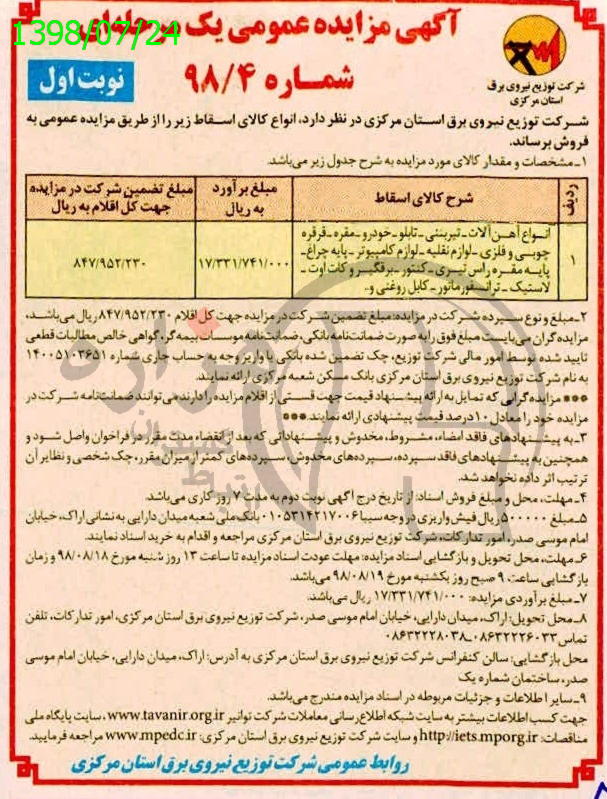 1398/07/24
آگهی مزایده عمومی یک مرحله‌ای
شماره ۹۸/۴
نوبت اول
شرکت توزیع نیروی برق
استان مرکزی
شرکت توزیع نیروی برق استان مرکزی در نظر دارد، انواع کالای اسقاط زیر را از طریق مزایده عمومی به
فروش برساند.
۱ـ مشخصات و مقدار کالای مورد مزایده به شرح جدول زیر می‌باشد.
ردیف
شرح کالای اسقاط
مبلغ برآورد
به ریال
مبلغ تضمین شرکت در مزایده
جهت کل اقلام به ریال
۱
انواع آهن آلات ـ تیربتنی ـ تابلو ـ خودرو ـ مقره ـ قرقره
چوبی و فلزی ـ لوازم نقلیه ـ لوازم کامپیوتر ـ پایه چراغ ـ
پایه مقره راس تیری ـ کنتور ـ برقگیر و کات اوت ـ
لاستیک ـ ترانسفورماتور ـ کابل روغنی و..
۱۷/۳۳۱/۷۴۱/۰۰۰
۸۴۷/۹۵۲/۲۳۰
۲ـ مبلغ و نوع سپرده شرکت در مزایده: مبلغ تضمین شرکت در مزایده جهت کل اقلام ۸۴۷/۹۵۲/۲۳۰ ریال می‌باشد،
مزایده گران می‌بایست مبلغ فوق را به صورت ضمانت‌نامه بانکی، ضمانت‌نامه موسسات بیمه گر، گواهی خالص مطالبات قطعی
تایید شده توسط امور مالی شرکت توزیع، چک تضمین شده بانکی یا واریز وجه به حساب جاری شماره ۱۴۰۰۵۱۰۳۶۵۱
به نام شرکت توزیع نیروی برق استان مرکزی بانک مسکن شعبه مرکزی ارائه نمایند.
*** مزایده گرانی که تمایل به ارائه پیشنهاد قیمت جهت قسمتی از اقلام مزایده را دارند می‌توانند ضمانت‌نامه شرکت در
مزایده خود را معادل ۱۰ درصد قیمت پیشنهادی ارائه نمایند ***
۳ـ به پیشنهادهای فاقد امضاء، مشروط، مخدوش و پیشنهاداتی که بعد از انقضاء مدت مقرر در فراخوان واصل شود و
همچنین به پیشنهادهای فاقد سپرده، سپرده‌های مخدوش، سپرده‌های کمتر از میزان مقرر، چک شخصی و نظایر آن
ترتیب اثر داده نخواهد شد.
۴ـ مهلت، محل و مبلغ فروش اسناد: از تاریخ درج آگهی نوبت دوم به مدت ۷ روز کاری می‌باشد.
۵ـ مبلغ ۵۰۰۰۰۰ ریال فیش واریزی در وجه سیبا ۰۱۰۵۳۱۴۲۱۷۰۰۶ بانک ملی شعبه میدان دارایی به نشانی اراک، خیابان
امام موسی صدر، امور تدارکات، شرکت توزیع نیروی برق استان مرکزی مراجعه و اقدام به خرید اسناد نمایند.
۶ـ مهلت، محل تحویل و بازگشایی اسناد مزایده: مهلت عودت اسناد مزایده تا ساعت ۱۳ روز شنبه مورخ ۹۸/۰۸/۱۸ و زمان
بازگشایی ساعت ۹ صبح روز یکشنبه مورخ ۹۸/۰۸/۱۹ می‌باشد.
۷ـ مبلغ برآوردی مزایده: ۱۷/۳۳۱/۷۴۱/۰۰۰ ریال می‌باشد.
۸ـ محل تحویل: اراک، میدان دارایی، خیابان امام موسی صدر، شرکت توزیع نیروی برق استان مرکزی، امور تدارکات، تلفن
تماس ۰۸۶۳۲۲۲۶۰۳۳ـ۰۸۶۳۲۲۲۸۰۳۸
محل بازگشایی: سالن کنفرانس شرکت توزیع نیروی برق استان مرکزی به آدرس: اراک، میدان دارایی، خیابان امام موسی
صدر، ساختمان شماره یک
۹ـ سایر اطلاعات و جزئیات مربوطه در اسناد مزایده مندرج می‌باشد.
جهت کسب اطلاعات بیشتر به سایت شبکه اطلاع رسانی معاملات شرکت توانیر www.tavanir.org.ir، سایت پایگاه ملی
مناقصات: http://iets.mporg.ir و سایت شرکت توزیع نیروی برق استان مرکزی: www.mpedc.ir مراجعه فرمایید.
روابط عمومی شرکت توزیع نیروی برق استان مرکزی